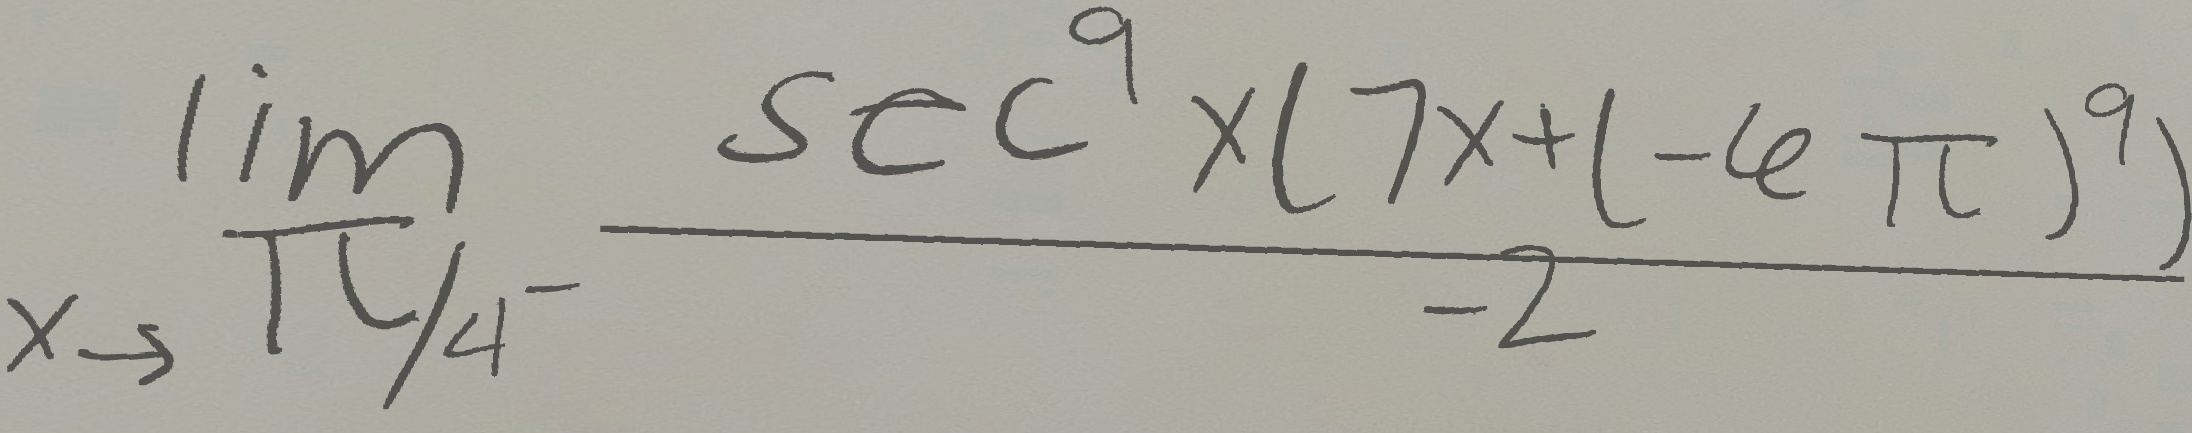 \lim_{x \to \pi/4^-} \frac{\sec^9 x(7x+(-6\pi)^9)}{-2}